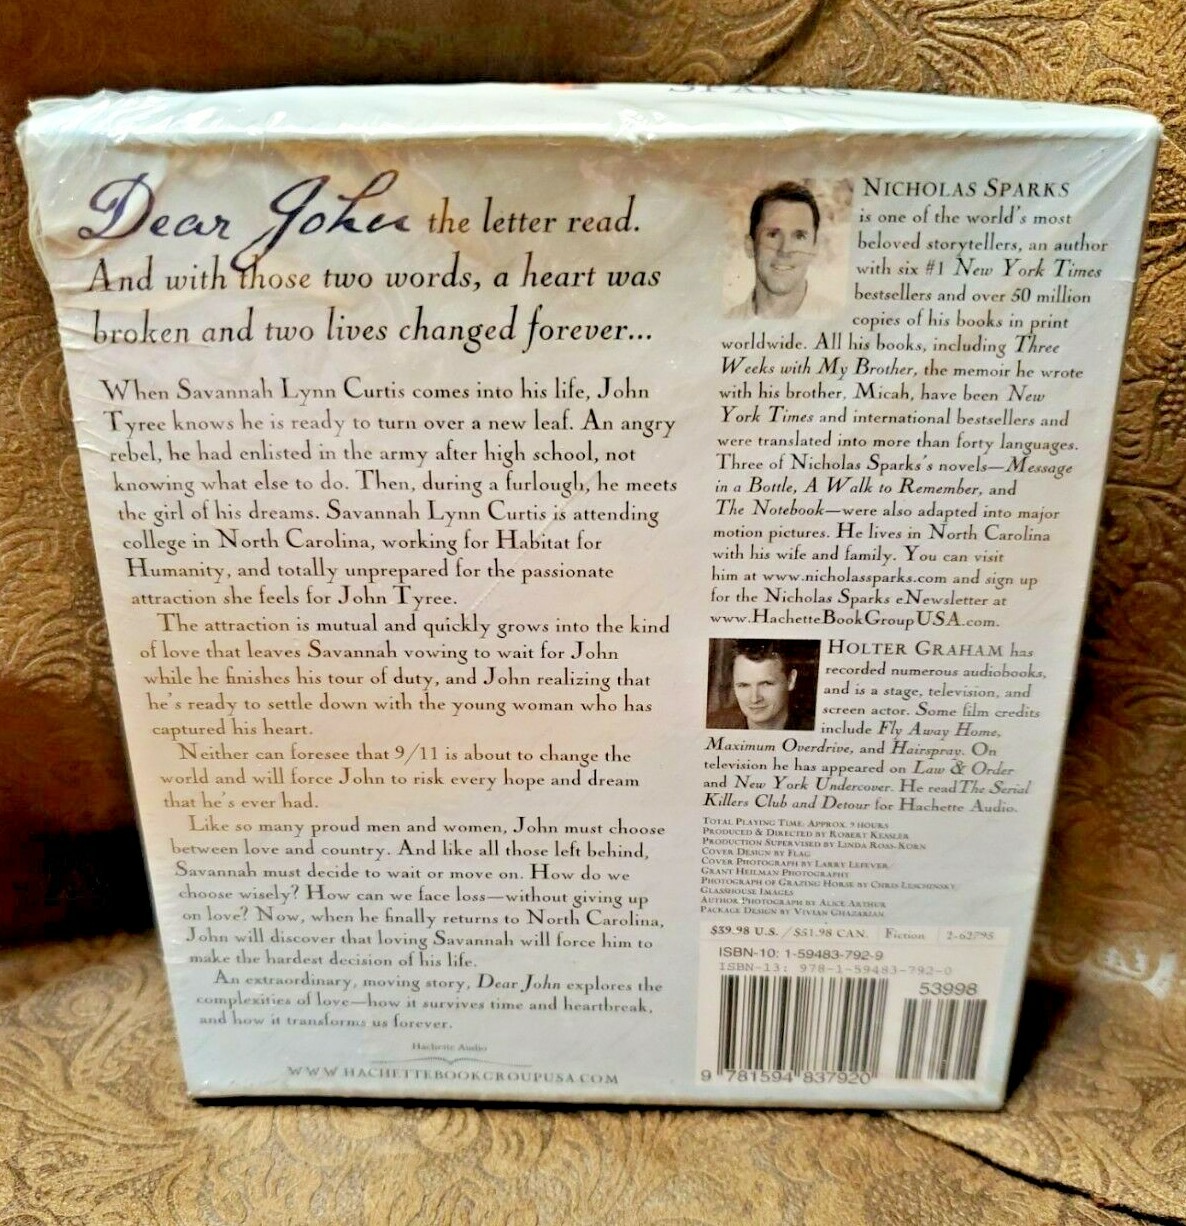 SPARKS
Dear John the letter read.
And with those two words, a heart was
broken and two lives changed forever...
When Savannah Lynn Curtis comes into his life, John
Tyree knows he is ready to turn over a new leaf. An angry
rebel, he had enlisted in the army after high school, not
knowing what else to do. Then, during a furlough, he meets
the girl of his dreams. Savannah Lynn Curtis is attending
college in North Carolina, working for Habitat for
Humanity, and totally unprepared for the passionate
attraction she feels for John Tyree.
The attraction is mutual and quickly grows into the kind
of love that leaves Savannah vowing to wait for John
while he finishes his tour of duty, and John realizing that
he's ready to settle down with the young woman who has
captured his heart.
Neither can foresee that 9/11 is about to change the
world and will force John to risk every hope and dream
that he's ever had.
Like so many proud men and women, John must choose
between love and country. And like all those left behind,
Savannah must decide to wait or move on. How do we
choose wisely? How can we face loss—without giving up
on love? Now, when he finally returns to North Carolina,
John will discover that loving Savannah will force him to
make the hardest decision of his life.
An extraordinary, moving story, Dear John explores the
complexities of love—how it survives time and heartbreak,
and how it transforms us forever.
Hachette Audio
WWW.HACHETTEBOOKGROUPUSA.COM
NICHOLAS SPARKS
is one of the world's most
beloved storytellers, an author
with six #1 New York Times
bestsellers and over 50 million
copies of his books in print
worldwide. All his books, including Three
Weeks with My Brother, the memoir he wrote
with his brother, Micah, have been New
York Times and international bestsellers and
were translated into more than forty languages.
Three of Nicholas Sparks's novels—Message
in a Bottle, A Walk to Remember, and
The Notebook—were also adapted into major
motion pictures. He lives in North Carolina
with his wife and family. You can visit
him at www.nicholassparks.com and sign up
for the Nicholas Sparks eNewsletter at
www.HachetteBookGroupUSA.com.
HOLTER GRAHAM has
recorded numerous audiobooks,
and is a stage, television, and
screen actor. Some film credits
include Fly Away Home,
Maximum Overdrive, and Hairspray. On
television he has appeared on Law & Order
and New York Undercover. He read The Serial
Killers Club and Detour for Hachette Audio.
TOTAL PLAYING TIME: APPROX. 9 HOURS
PRODUCED & DIRECTED BY ROBERT KESSLER
PRODUCTION SUPERVISED BY LINDA ROSS-KORN
COVER DESIGN BY FLAG
COVER PHOTOGRAPH BY LARRY LEFEVER
GRANT HEILMAN PHOTOGRAPHY
PHOTOGRAPH OF GRAZING HORSE BY CHRIS LESCHINSKY
GLASSHOUSE IMAGES
AUTHOR PHOTOGRAPH BY ALICE ARTHUR
PACKAGE DESIGN BY VIVIAN GHAZARIAN
$39.98 U.S. /$51.98 CAN. Fiction 2-62795
ISBN-10: 1-59483-792-9
ISBN-13: 978-1-59483-792-0
53998
9 781594 837920